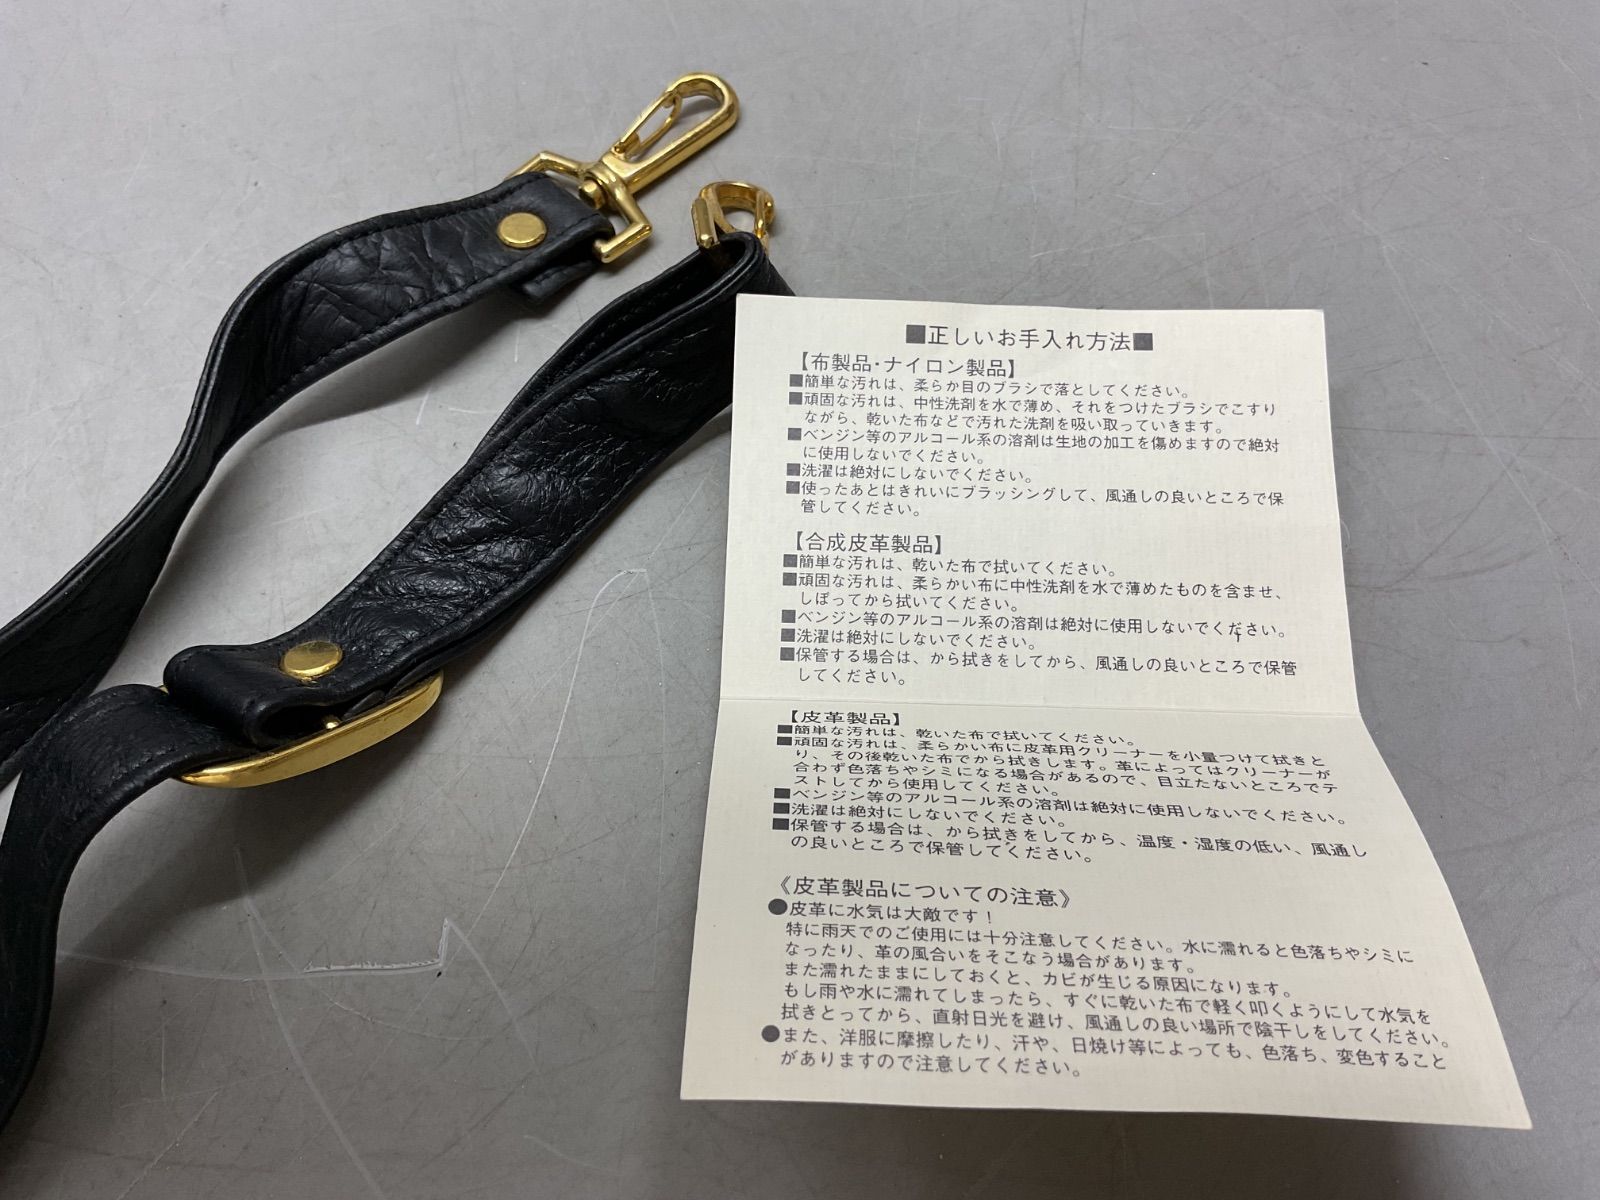 ■正しいお手入れ方法■
【布製品・ナイロン製品】
■簡単な汚れは、柔らか目のブラシで落としてください。
■頑固な汚れは、中性洗剤を水で薄め、それをつけたブラシでこすり
ながら、乾いた布などで汚れた洗剤を吸い取っていきます。
■ベンジン等のアルコール系の溶剤は生地の加工を傷めますので絶対
に使用しないでください。
■洗濯は絶対にしないでください。
■使ったあとはきれいにブラッシングして、風通しの良いところで保
管してください。
【合成皮革製品】
■簡単な汚れは、乾いた布で拭いてください。
■頑固な汚れは、柔らかい布に中性洗剤を水で薄めたものを含ませ、
しぼってから拭いてください。
■ベンジン等のアルコール系の溶剤は絶対に使用しないでください。
■洗濯は絶対にしないでください。
■保管する場合は、から拭きをしてから、風通しの良いところで保管
してください。
【皮革製品】
■簡単な汚れは、乾いた布で拭いてください。
■頑固な汚れは、柔らかい布に皮革用クリーナーを小量つけて拭きと
り、その後乾いた布でから拭きします。革によってはクリーナーが
合わず色落ちやシミになる場合があるので、目立たないところでテ
ストしてから使用してください。
■ベンジン等のアルコール系の溶剤は絶対に使用しないでください。
■洗濯は絶対にしないでください。
■保管する場合は、から拭きをしてから、温度・湿度の低い、風通し
の良いところで保管してください。
《皮革製品についての注意》
●皮革に水気は大敵です！
特に雨天でのご使用には十分注意してください。水に濡れると色落ちやシミに
なったり、革の風合いをそこなう場合があります。
また濡れたままにしておくと、カビが生じる原因になります。
もし雨や水に濡れてしまったら、すぐに乾いた布で軽く叩くようにして水気を
拭きとってから、直射日光を避け、風通しの良い場所で陰干しをしてください。
●また、洋服に摩擦したり、汗や、日焼け等によっても、色落ち、変色すること
がありますので注意してください。